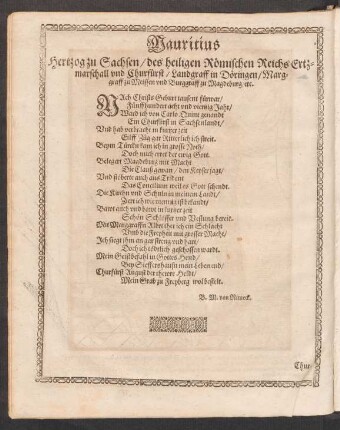 Mauritius
Hertzog zu Sachsen/ des heiligen Römischen Reichs Ertz-
marschall vnd Churfürst/ Landgraff in Döringen/ Marg-
graff zu Meissen vnd Burggraff zu Magdeburg etc.
NAch Christs Geburt tausent fürwar/
Fünffhundert acht vnd viertzig Jahr/
Ward ich von Carlo Quint genandt
Ein Churfürst in Sachsenlandt/
Vnd hab verbracht in kurtzer zeit
Eilff Züg gar Ritterlich ich streit.
Beym Türcken kam ich in grosse Noth/
Doch mich errett der ewig Gott.
Belegert Magdeburg mit Macht
Die Clauß gewan/ den Keyser jagt/
Vnd störete auch aus Trident
Das Concilium weil es Gott schendt.
Die Kirchn vnd Schuln in meinem Landt/
Ziert ich wie menniglich bekandt/
Bawt auch vnd bawt in kurtzer zeit
Schön Schlösser vnd Vestung bereit.
Mit Marggraffn Albrechtn ich ein Schlacht
Thet bey mit grosser Macht/
Ich siegt ihm an gar streng vnd hart/
Doch ich tödtlich geschossen wardt.
Mein Geist befahl in Gottes Hend/
Bey Sieffershausn mein Leben end/
Churfürst August der thewre Heldt/
Mein Grab zu Freyberg wol bestelt.
B. M. von
Chur-